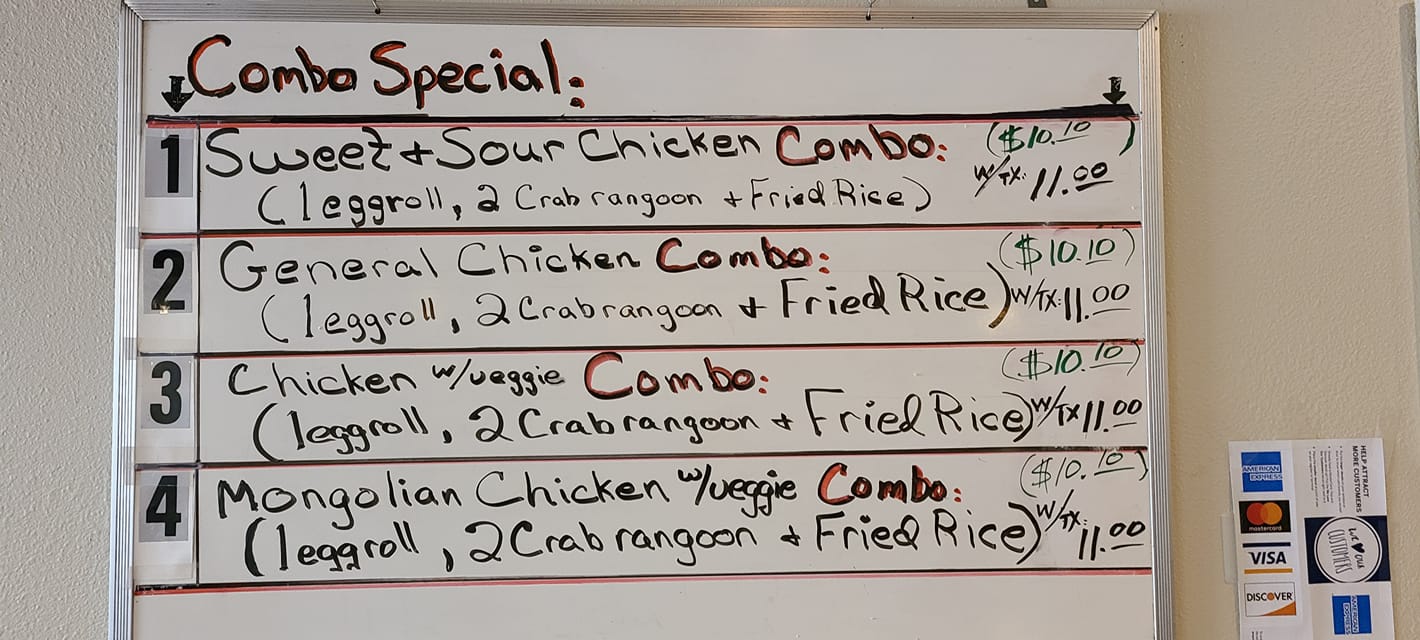 Combo Special:
1 Sweet + Sour Chicken Combo: ($10.10)
(1 eggroll, 2 Crab rangoon + Fried Rice) W/TX: 11.00
2 General Chicken Combo: ($10.10)
(1 eggroll, 2 Crab rangoon + Fried Rice) W/TX: 11.00
3 Chicken w/veggie Combo: ($10.10)
(1 eggroll, 2 Crab rangoon + Fried Rice) W/TX 11.00
4 Mongolian Chicken w/veggie Combo: ($10.10)
(1 eggroll, 2 Crab rangoon + Fried Rice) W/TX: 11.00
AMERICAN
EXPRESS
mastercard
VISA
DISCOVER
HELP ATTRACT
MORE CUSTOMERS
WE OUR
CUSTOMERS
AMERICAN
EXPRESS